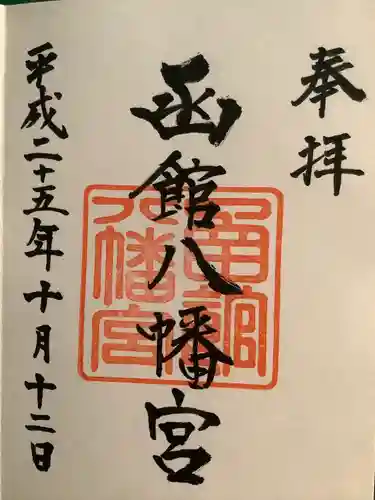 奉拝
函館八幡宮
平成二十五年十月十二日
函館八幡宮